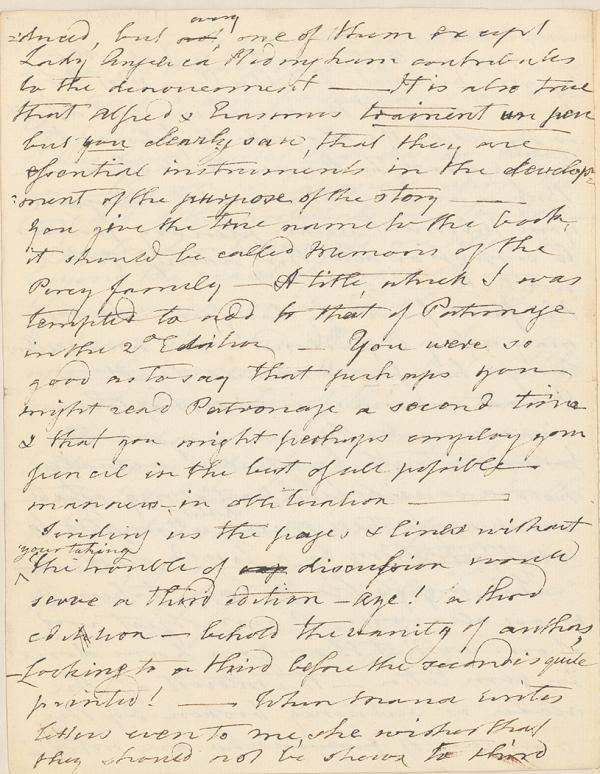 =duced, but every one of them except
Lady Angelica Headingham contributes
to the denouement — It is also true
that Alfred & Erasmus trainent un peu
but you clearly saw, that they are
essential instruments in the develop=
=ment of the purpose of the story —
You give the true name to the book,
it should be called Memoirs of the
Percy family — A title which I was
tempted to add to that of Patronage
in the 2d Edition — You were so
good as to say that perhaps you
might read Patronage a second time
& that you might perhaps employ your
pencil in the best of all possible
manners in obliteration —
Sending us the pages & lines without
your taking
the trouble of discussion would
serve a third edition — aye! a third
edition — behold the vanity of authors,
— Looking to a third before the second is quite
printed! — When writes
letters even to me, she wishes that
they should not be shewn to third